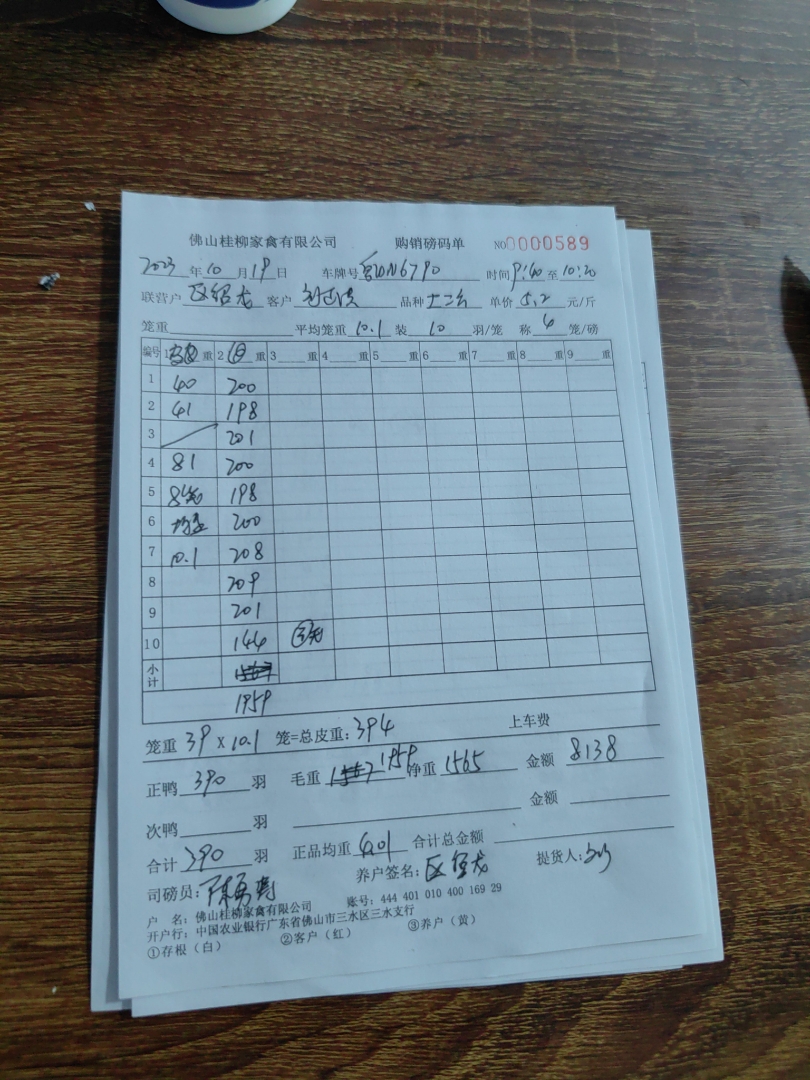 佛山桂柳家禽有限公司 购销磅码单 NO0000589
2023年10月19日 车牌号 N6790 时间9:40至10:20
联营户 区绍龙 客户 品种 十二 单价5.2元/斤
笼重 平均笼重10.1装10羽/笼 称4笼/磅
编号 1 重 2 重 3 重 4 重 5 重 6 重 7 重 8 重 9 重
1 40 200
2 41 198
3 201
4 81 200
5 8笼 198
6 均重 200
7 10.1 208
8 209
9 201
10 144 ③笼
小计
1959
笼重39×10.1 笼=总皮重:394 上车费
正鸭390羽 毛重1959净重1565 金额8138
次鸭 羽 金额
合计390羽 正品均重4.01 合计总金额
司磅员: 养户签名:区绍龙 提货人:
户 名:佛山桂柳家禽有限公司 账号:444 401 010 400 169 29
开户行:中国农业银行广东省佛山市三水区三水支行
①存根(白) ②客户(红) ③养户(黄)